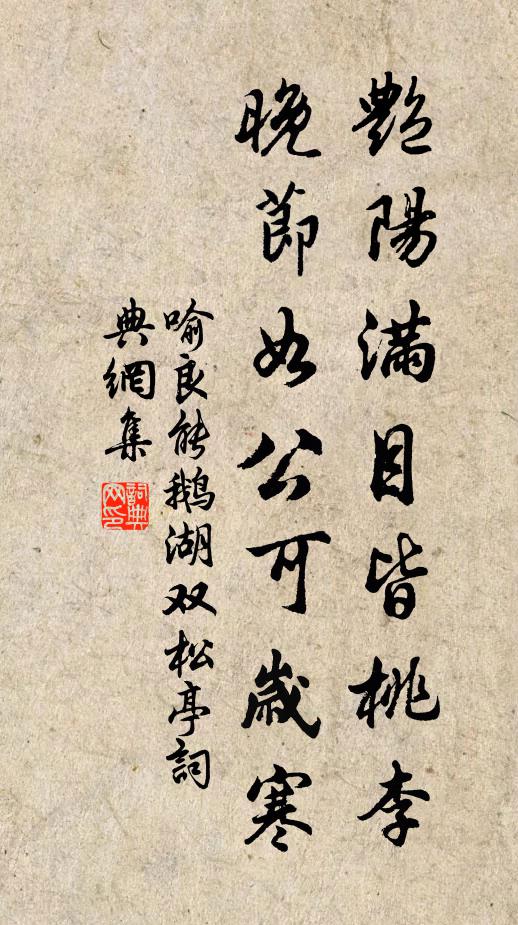 艷陽滿目皆桃李
晚節如公可歲寒
喻良能鵝湖双松亭詞
典網集
詞典
网印